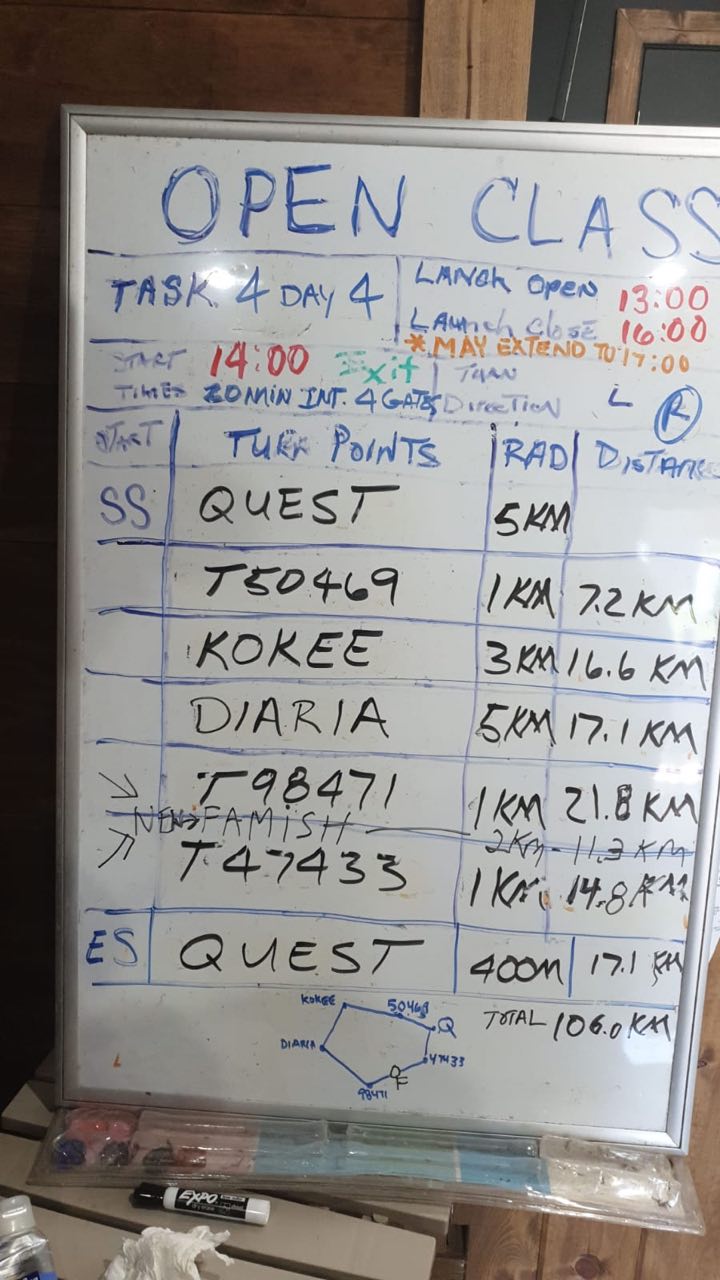 OPEN CLASS
TASK 4 DAY 4
LANCH OPEN 13:00
LAUNCH CLOSE 16:00
* MAY EXTEND TO 17:00
START 14:00 Exit
TIMES 20 MIN INT. 4 GATES
Direction L R
START TURN POINTS RAD DISTANC
SS QUEST 5KM
T50469 1KM 7.2 KM
KOKEE 3KM 16.6 KM
DIARIA 5KM 17.1 KM
T98471 1KM 21.8 KM
NEW→ FAMISH 2KM - 11.3 KM
T47433 1KM 14.8 KM
ES QUEST 400M 17.1 KM
TOTAL 106.0 KM
KOKEE 50469
Q
DIARIA
47433
F
98471
L
EXPO